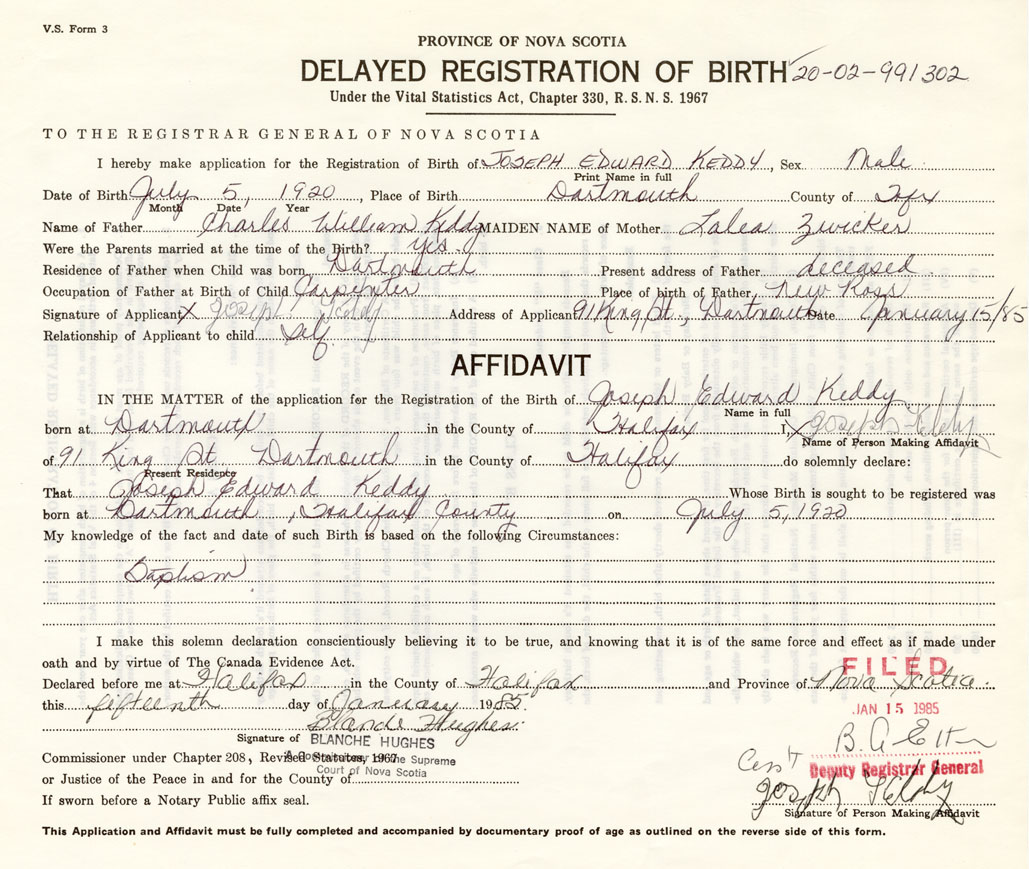 V.S. Form 3
PROVINCE OF NOVA SCOTIA
DELAYED REGISTRATION OF BIRTH 20-02-991302
Under the Vital Statistics Act, Chapter 330, R.S.N.S. 1967
TO THE REGISTRAR GENERAL OF NOVA SCOTIA
I hereby make application for the Registration of Birth of JOSEPH EDWARD KEDDY, Sex Male
Print Name in full
Date of Birth July 5, 1920, Place of Birth Dartmouth County of Hfx
Month Date Year
Name of Father Charles William Keddy MAIDEN NAME of Mother Lalea Zwicker
Were the Parents married at the time of the Birth? yes.
Residence of Father when Child was born Dartmouth Present address of Father deceased
Occupation of Father at Birth of Child Carpenter Place of birth of Father New Ross
Signature of Applicant X Joseph Keddy Address of Applicant 91 King St., Dartmouth Date January 15/85
Relationship of Applicant to child self
AFFIDAVIT
IN THE MATTER of the application for the Registration of the Birth of Joseph Edward Keddy
Name in full
born at Dartmouth in the County of Halifax I, X Joseph Keddy
Name of Person Making Affidavit
of 91 King St. Dartmouth in the County of Halifax do solemnly declare:
Present Residence
That Joseph Edward Keddy Whose Birth is sought to be registered was
born at Dartmouth, Halifax County on July 5, 1920
My knowledge of the fact and date of such Birth is based on the following Circumstances:
Baptism
I make this solemn declaration conscientiously believing it to be true, and knowing that it is of the same force and effect as if made under
oath and by virtue of The Canada Evidence Act.
FILED
Declared before me at Halifax in the County of Halifax and Province of Nova Scotia.
this fifteenth day of January 1985.
JAN 15 1985
Blanche Hughes
Signature of BLANCHE HUGHES
Commissioner under Chapter 208, Revised Statutes, 1967
A Commissioner of the Supreme
Court of Nova Scotia
Deputy Registrar General
or Justice of the Peace in and for the County of
Joseph Keddy
If sworn before a Notary Public affix seal.
Signature of Person Making Affidavit
This Application and Affidavit must be fully completed and accompanied by documentary proof of age as outlined on the reverse side of this form.